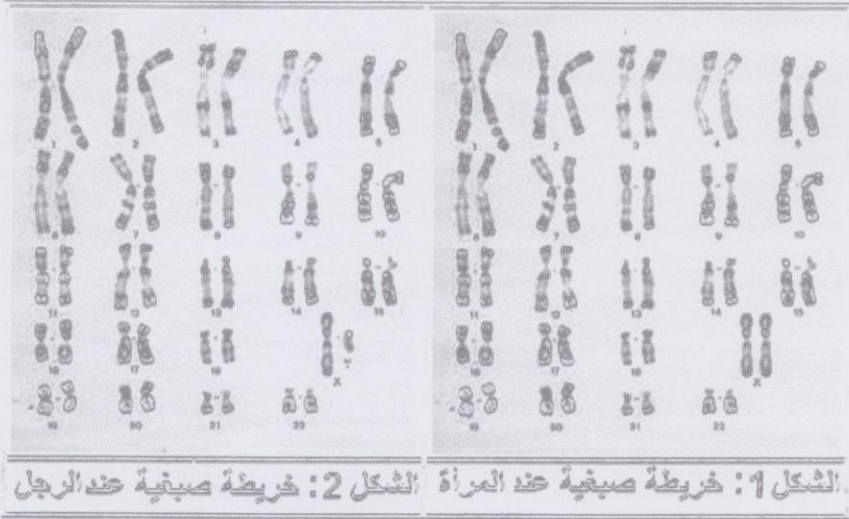 1 2 3 4 5
6 7 8 9 10
11 12 13 14 15
16 17 18 X
19 20 21
الشكل 1: خريطة صبغية عند المرأة
1 2 3 4 5
6 7 8 9 10
11 12 13 14 15
16 17 18 X Y
19 20 21 22
الشكل 2: خريطة صبغية عند الرجل